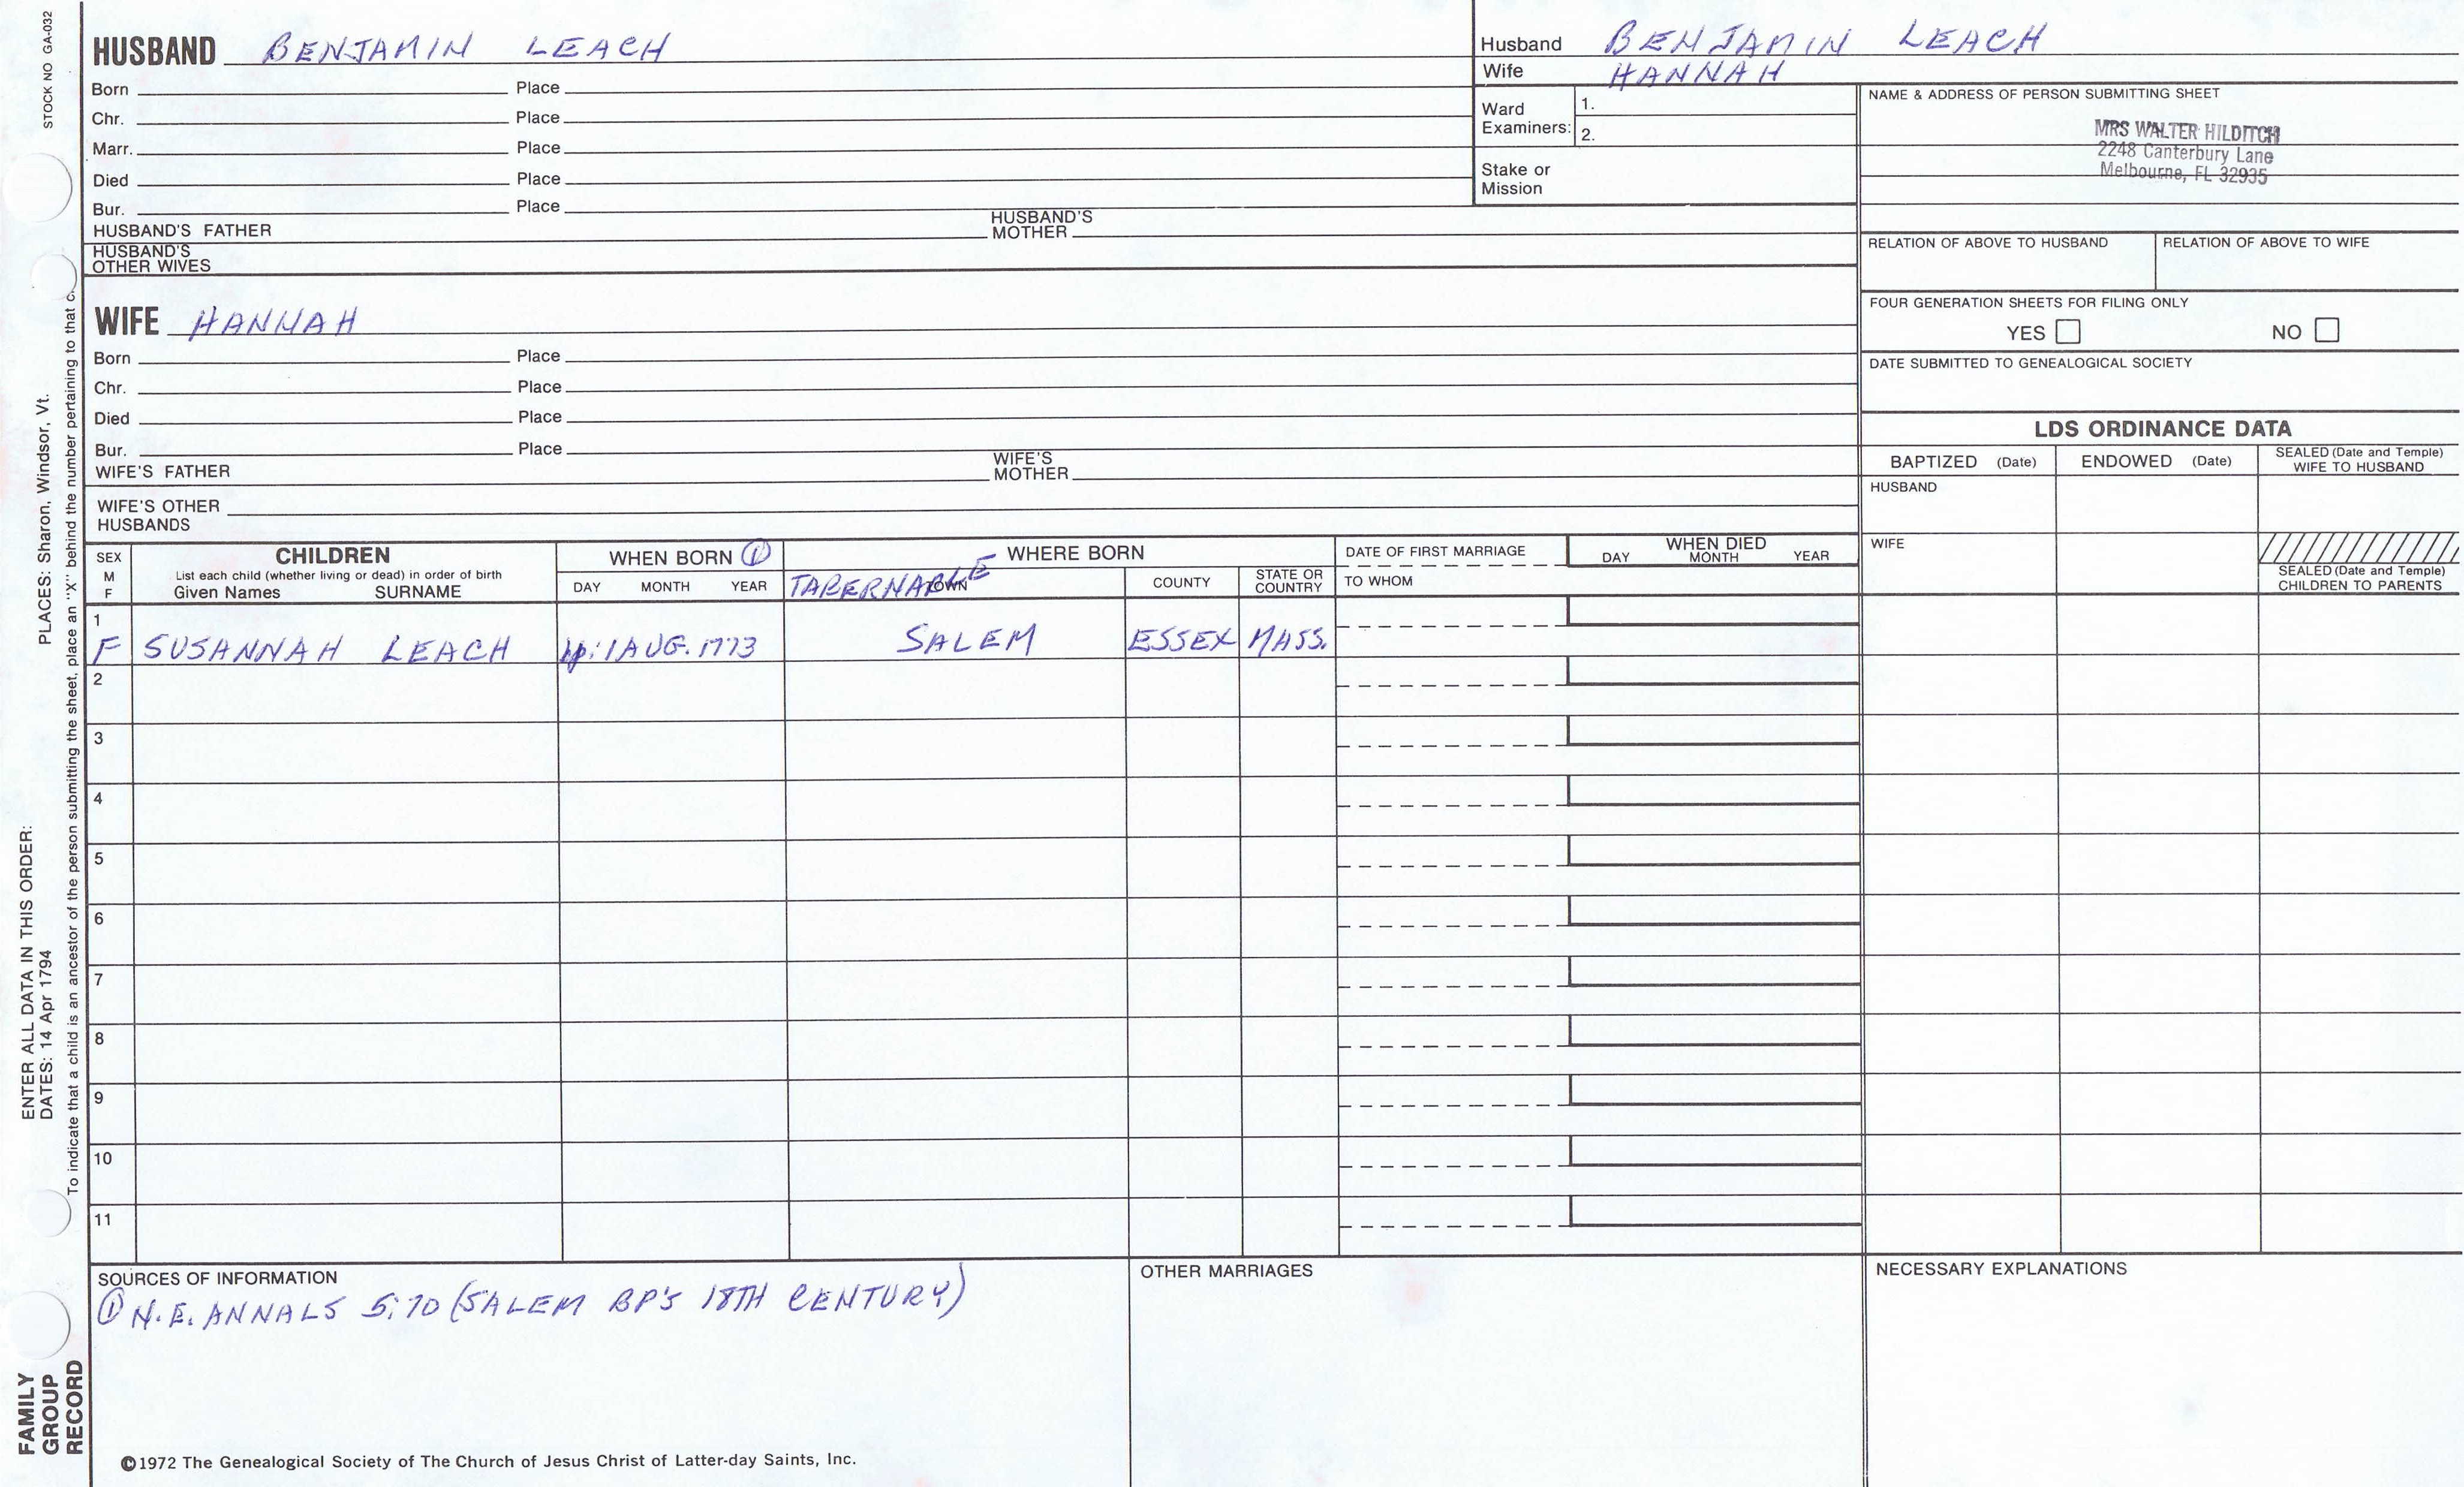 STOCK NO GA-032
PLACES: Sharon, Windsor, Vt.
ENTER ALL DATA IN THIS ORDER:
DATES: 14 Apr 1794
To indicate that a child is an ancestor of the person submitting the sheet, place an "X" behind the number pertaining to that c
FAMILY
GROUP
RECORD
HUSBAND BENJAMIN LEACH
Born Place
Chr. Place
Marr. Place
Died Place
Bur. Place
HUSBAND'S FATHER
HUSBAND'S
MOTHER
HUSBAND'S
OTHER WIVES
WIFE HANNAH
Born Place
Chr. Place
Died Place
Bur. Place
WIFE'S FATHER
WIFE'S
MOTHER
WIFE'S OTHER
HUSBANDS
Husband BENJAMIN LEACH
Wife HANNAH
Ward
Examiners:
1.
2.
Stake or
Mission
NAME & ADDRESS OF PERSON SUBMITTING SHEET
MRS WALTER HILDITCH
2248 Canterbury Lane
Melbourne, FL 32935
RELATION OF ABOVE TO HUSBAND
RELATION OF ABOVE TO WIFE
FOUR GENERATION SHEETS FOR FILING ONLY
YES NO
DATE SUBMITTED TO GENEALOGICAL SOCIETY
LDS ORDINANCE DATA
BAPTIZED (Date)
ENDOWED (Date)
SEALED (Date and Temple)
WIFE TO HUSBAND
HUSBAND
WIFE
SEALED (Date and Temple)
CHILDREN TO PARENTS
SEX
M
F
CHILDREN
List each child (whether living or dead) in order of birth
Given Names SURNAME
WHEN BORN ①
DAY MONTH YEAR
WHERE BORN
TABERNACLE
TOWN
COUNTY
STATE OR
COUNTRY
DATE OF FIRST MARRIAGE
TO WHOM
WHEN DIED
DAY MONTH YEAR
1
F SUSANNAH LEACH 1 AUG. 1773 SALEM ESSEX MASS.
2
3
4
5
6
7
8
9
10
11
SOURCES OF INFORMATION
① N.E. ANNALS 5:70 (SALEM BP'S 18TH CENTURY)
OTHER MARRIAGES
NECESSARY EXPLANATIONS
©1972 The Genealogical Society of The Church of Jesus Christ of Latter-day Saints, Inc.